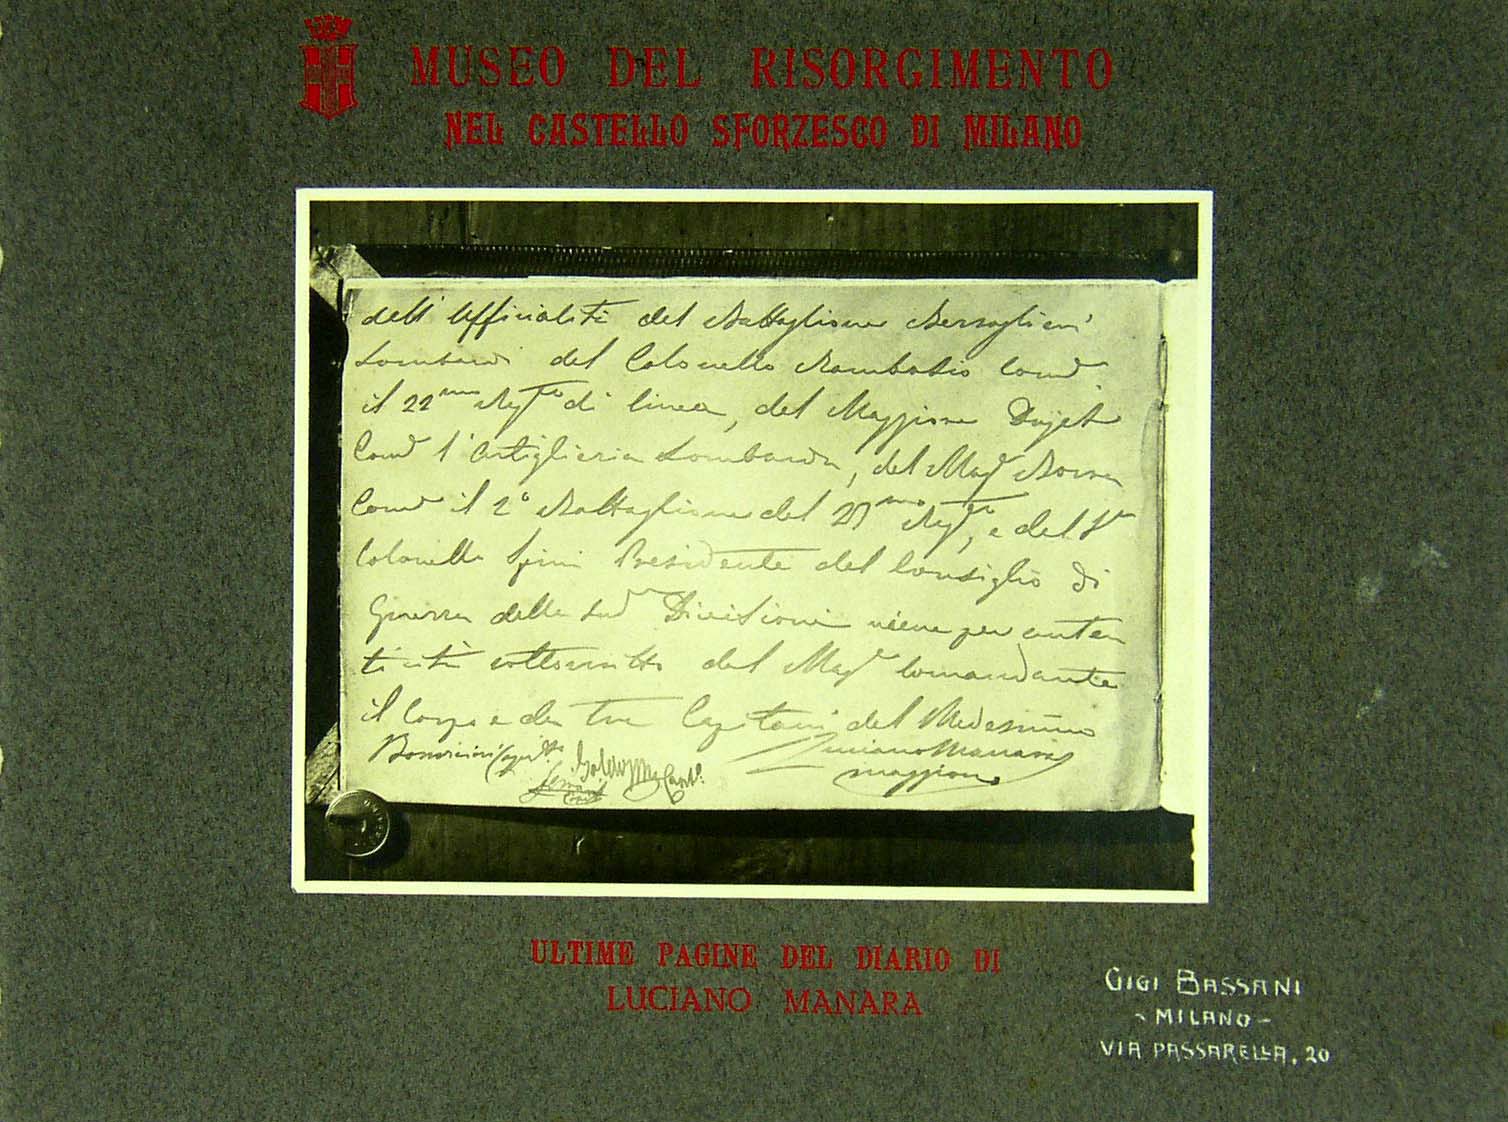 MUSEO DEL RISORGIMENTO
NEL CASTELLO SFORZESCO DI MILANO
dell' Uffizialità del Battaglione Bersaglieri
Lombardi del Colonello Rambosio Com.d
il 22mo Regto di linea, del Maggiore
Comd l'Artiglieria Lombarda, del Magre
Comd il 2° Battaglione del 21mo Regto, e del
Colonello Spini Presidente del Consiglio di
Guerra della Sud.a Divisione viene per auten
ticità sottoscritto dal Magre Comandante
il Corpo e da tre Capitani del Medesimo
Luciano Manara
maggiore
ULTIME PAGINE DEL DIARIO DI
LUCIANO MANARA
GIGI BASSANI
- MILANO -
VIA PASSARELLA, 20